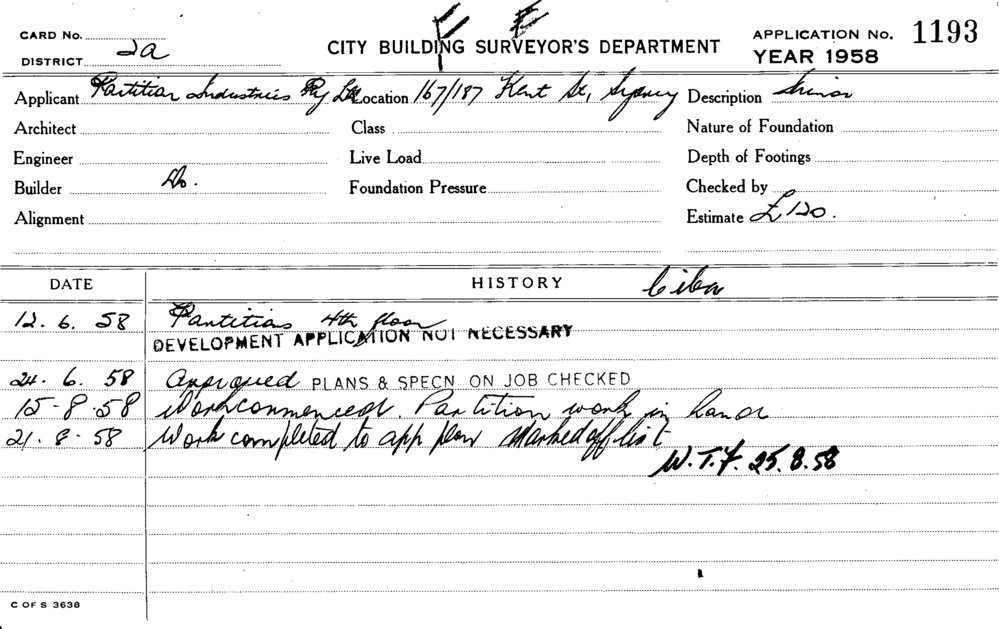 CARD No.
DISTRICT 2a
CITY BUILDING SURVEYOR'S DEPARTMENT
APPLICATION No. 1193
YEAR 1958
Applicant Partition Industries Pty Ltd Location 167/187 Kent St, Sydney Description Minor
Architect Class Nature of Foundation
Engineer Live Load Depth of Footings
Builder Do. Foundation Pressure Checked by
Alignment Estimate £120.
DATE HISTORY Ciba
12. 6. 58 Partitions 4th floor
DEVELOPMENT APPLICATION NOT NECESSARY
24. 6. 58 Approved PLANS & SPECN ON JOB CHECKED
15-8-58 Work commenced. Partition work in hand
21. 8. 58 Work completed to app plan Marked off list
W.T.F. 25.8.58
C OF S 3638